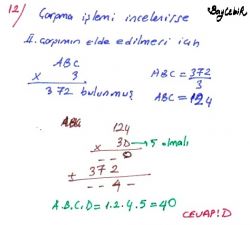 12/ Çarpma işlemi incelenirse
BayÇebir
II. çarpımın elde edilmesi için
ABC
x 3
372 bulunmuş
ABC = 372
3
ABC = 124
124
x 3D → 5 olmalı
- - 0
+ 372
- - 4 -
A.B.C.D = 1.2.4.5 = 40
CEVAP: D